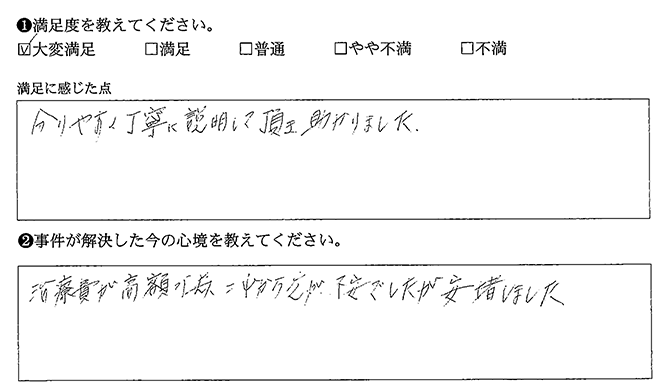 ❶満足度を教えてください。
☑大変満足 □満足 □普通 □やや不満 □不満
満足に感じた点
分りやすく丁寧に説明して頂き助かりました.
❷事件が解決した今の心境を教えてください。
治療費が高額 不安でしたが安堵しました